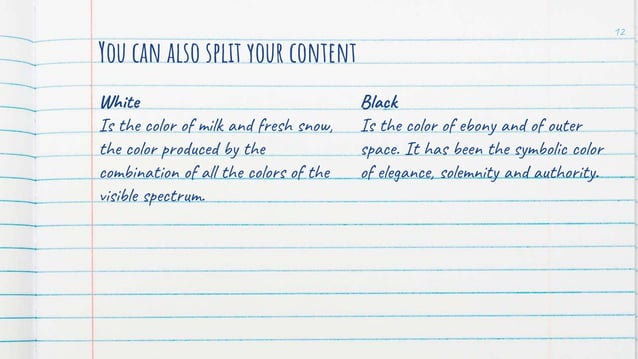 12
You can also split your content
White
Is the color of milk and fresh snow,
the color produced by the
combination of all the colors of the
visible spectrum.
Black
Is the color of ebony and of outer
space. It has been the symbolic color
of elegance, solemnity and authority.